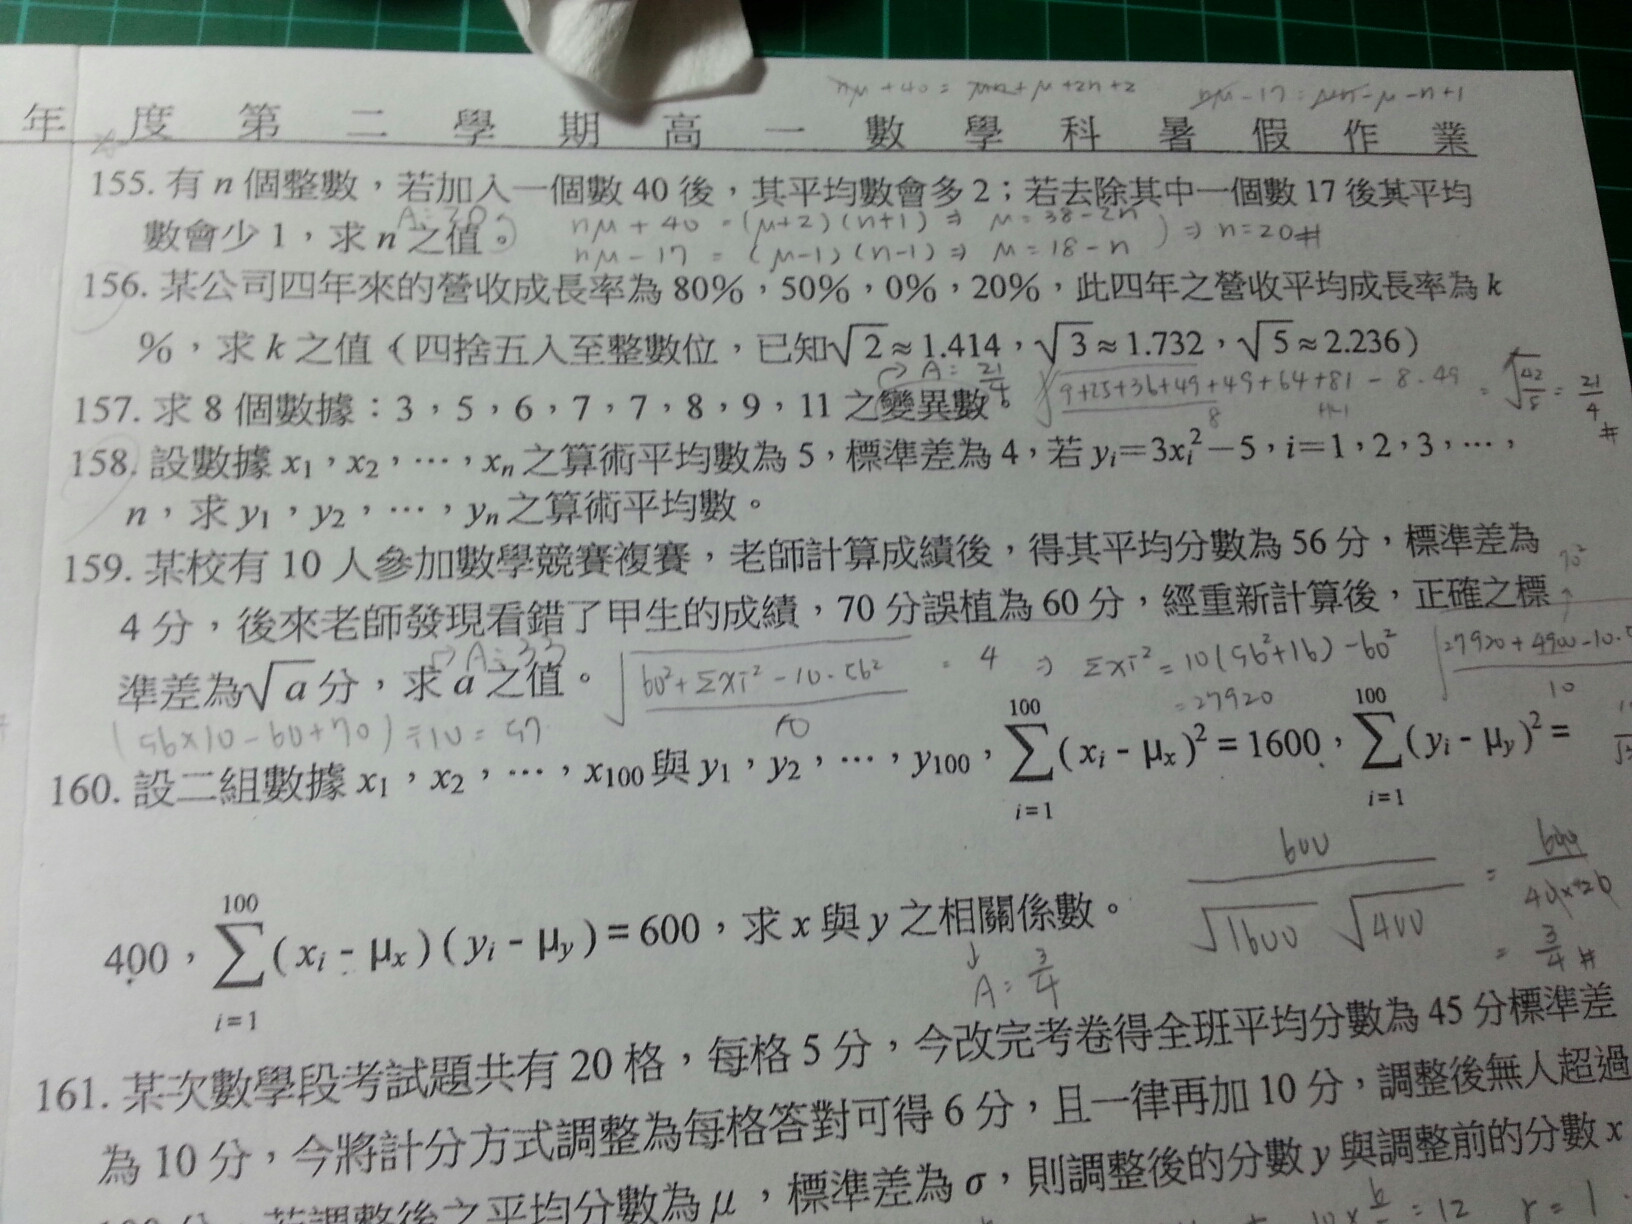 nμ + 40 = μn + μ + 2n + 2 nμ - 17 = μn - μ - n + 1
年度第二學期高一數學科暑假作業
155. 有 n 個整數，若加入一個數 40 後，其平均數會多 2；若去除其中一個數 17 後其平均
數會少 1，求 n 之值。 nμ + 40 = (μ+2)(n+1) ⇒ μ = 38 - 2n
nμ - 17 = (μ-1)(n-1) ⇒ μ = 18 - n ) ⇒ n = 20 #
156. 某公司四年來的營收成長率為 80%，50%，0%，20%，此四年之營收平均成長率為 k
%，求 k 之值（四捨五入至整數位，已知√2≈1.414，√3≈1.732，√5≈2.236）
A = 21/4
157. 求 8 個數據：3，5，6，7，7，8，9，11 之變異數。 √(9+25+36+49+49+64+81 - 8·49 / 8) = √(42/8) = 21/4 #
158. 設數據 x₁，x₂，…，xₙ 之算術平均數為 5，標準差為 4，若 yᵢ=3xᵢ²－5，i=1，2，3，…，
n，求 y₁，y₂，…，yₙ 之算術平均數。
159. 某校有 10 人參加數學競賽複賽，老師計算成績後，得其平均分數為 56 分，標準差為
70²
4 分，後來老師發現看錯了甲生的成績，70 分誤植為 60 分，經重新計算後，正確之標
A = 33
準差為√a 分，求 a 之值。 √(60² + Σxi² - 10·56² / 10) = 4 ⇒ Σxi² = 10(56²+16) - 60²
= 27920
(56×10 - 60 + 70) ÷ 10 = 57
160. 設二組數據 x₁，x₂，…，x₁₀₀ 與 y₁，y₂，…，y₁₀₀，∑_{i=1}^{100}(xᵢ - μₓ)² = 1600，∑_{i=1}^{100}(yᵢ - μ_y)² =
400，∑_{i=1}^{100}(xᵢ - μₓ)(yᵢ - μ_y) = 600，求 x 與 y 之相關係數。
600 / √1600 √400 = 600 / 40×20
= 3/4 #
A = 3/4
161. 某次數學段考試題共有 20 格，每格 5 分，今改完考卷得全班平均分數為 45 分標準差
為 10 分，今將計分方式調整為每格答對可得 6 分，且一律再加 10 分，調整後無人超過
100 分，若調整後之平均分數為 μ，標準差為 σ，則調整後的分數 y 與調整前的分數 x
= 12 r = 1